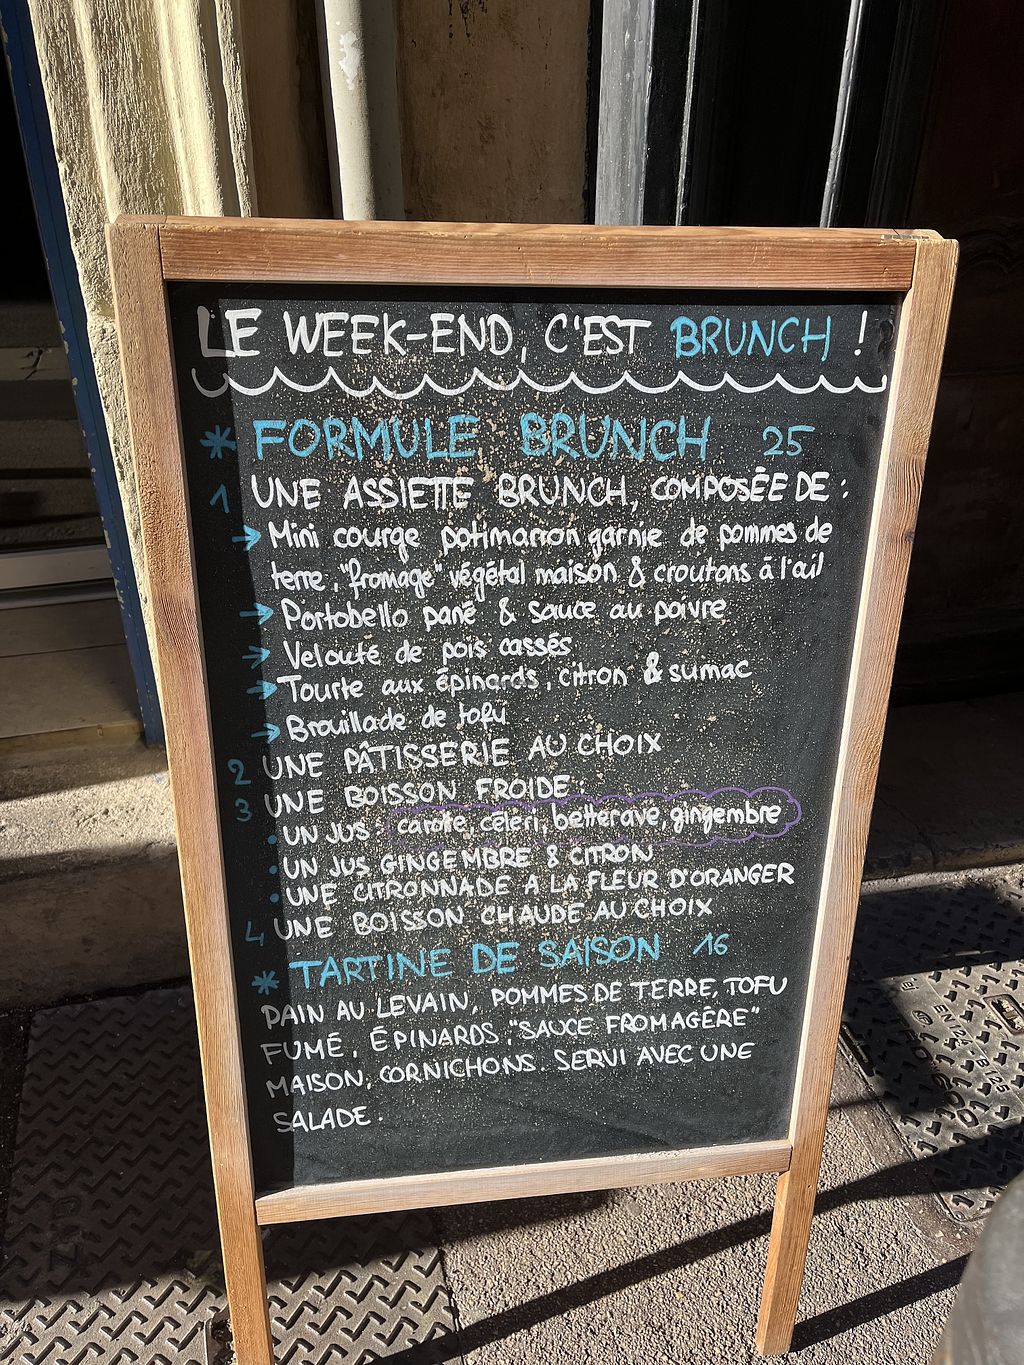 LE WEEK-END, C'EST BRUNCH !
* FORMULE BRUNCH 25
1 UNE ASSIETTE BRUNCH, COMPOSÉE DE :
→ Mini courge potimarron garnie de pommes de
terre, "fromage" végétal maison & croutons à l'ail
→ Portobello pané & sauce au poivre
→ Velouté de pois cassés
→ Tourte aux épinards, citron & sumac
→ Brouillade de tofu
2 UNE PÂTISSERIE AU CHOIX
3 UNE BOISSON FROIDE :
• UN JUS : carotte, céleri, betterave, gingembre
• UN JUS GINGEMBRE & CITRON
• UNE CITRONNADE A LA FLEUR D'ORANGER
4 UNE BOISSON CHAUDE AU CHOIX
* TARTINE DE SAISON 16
PAIN AU LEVAIN, POMMES DE TERRE, TOFU
FUMÉ, ÉPINARDS, "SAUCE FROMAGÈRE"
MAISON, CORNICHONS. SERVI AVEC UNE
SALADE.